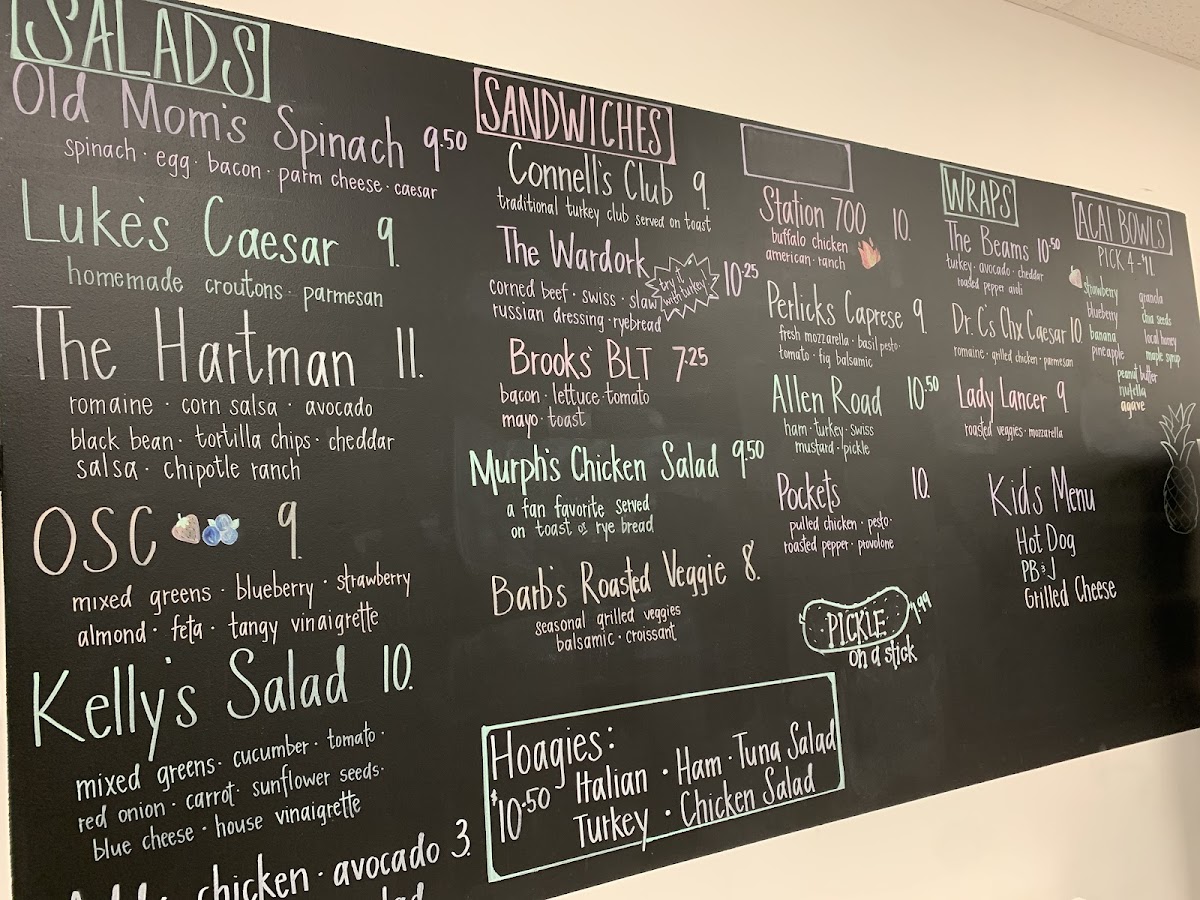 SALADS
Old Mom's Spinach 9.50
spinach · egg · bacon · parm cheese · caesar
Luke's Caesar 9.
homemade croutons · parmesan
The Hartman 11.
romaine · corn salsa · avocado
black bean · tortilla chips · cheddar
salsa · chipotle ranch
OSC 9.
mixed greens · blueberry · strawberry
almond · feta · tangy vinaigrette
Kelly's Salad 10.
mixed greens · cucumber · tomato ·
red onion · carrot · sunflower seeds ·
blue cheese · house vinaigrette
chicken · avocado 3.
SANDWICHES
Connell's Club 9.
traditional turkey club served on toast
The Wardork 10.25
try it
with turkey
corned beef · swiss · slaw
russian dressing · ryebread
Brooks' BLT 7.25
bacon · lettuce · tomato
mayo · toast
Murph's Chicken Salad 9.50
a fan favorite served
on toast or rye bread
Barb's Roasted Veggie 8.
seasonal grilled veggies
balsamic · croissant
Hoagies:
$10.50
Italian · Ham · Tuna Salad
Turkey · Chicken Salad
Station 700 10.
buffalo chicken
american · ranch
Perlicks Caprese 9.
fresh mozzarella · basil pesto ·
tomato · fig balsamic
Allen Road 10.50
ham · turkey · swiss
mustard · pickle
Pockets 10.
pulled chicken · pesto ·
roasted pepper · provolone
PICKLE 1.99
on a stick
WRAPS
The Beams 10.50
turkey · avocado · cheddar
roasted pepper aioli
Dr. C's Chx Caesar 10
romaine · grilled chicken · parmesan
Lady Lancer 9.
roasted veggies · mozzarella
Kid's Menu
Hot Dog
PB & J
Grilled Cheese
ACAI BOWLS
PICK 4 - 11.
strawberry
blueberry
banana
pineapple
granola
chia seeds
local honey
maple syrup
peanut butter
nutella
agave